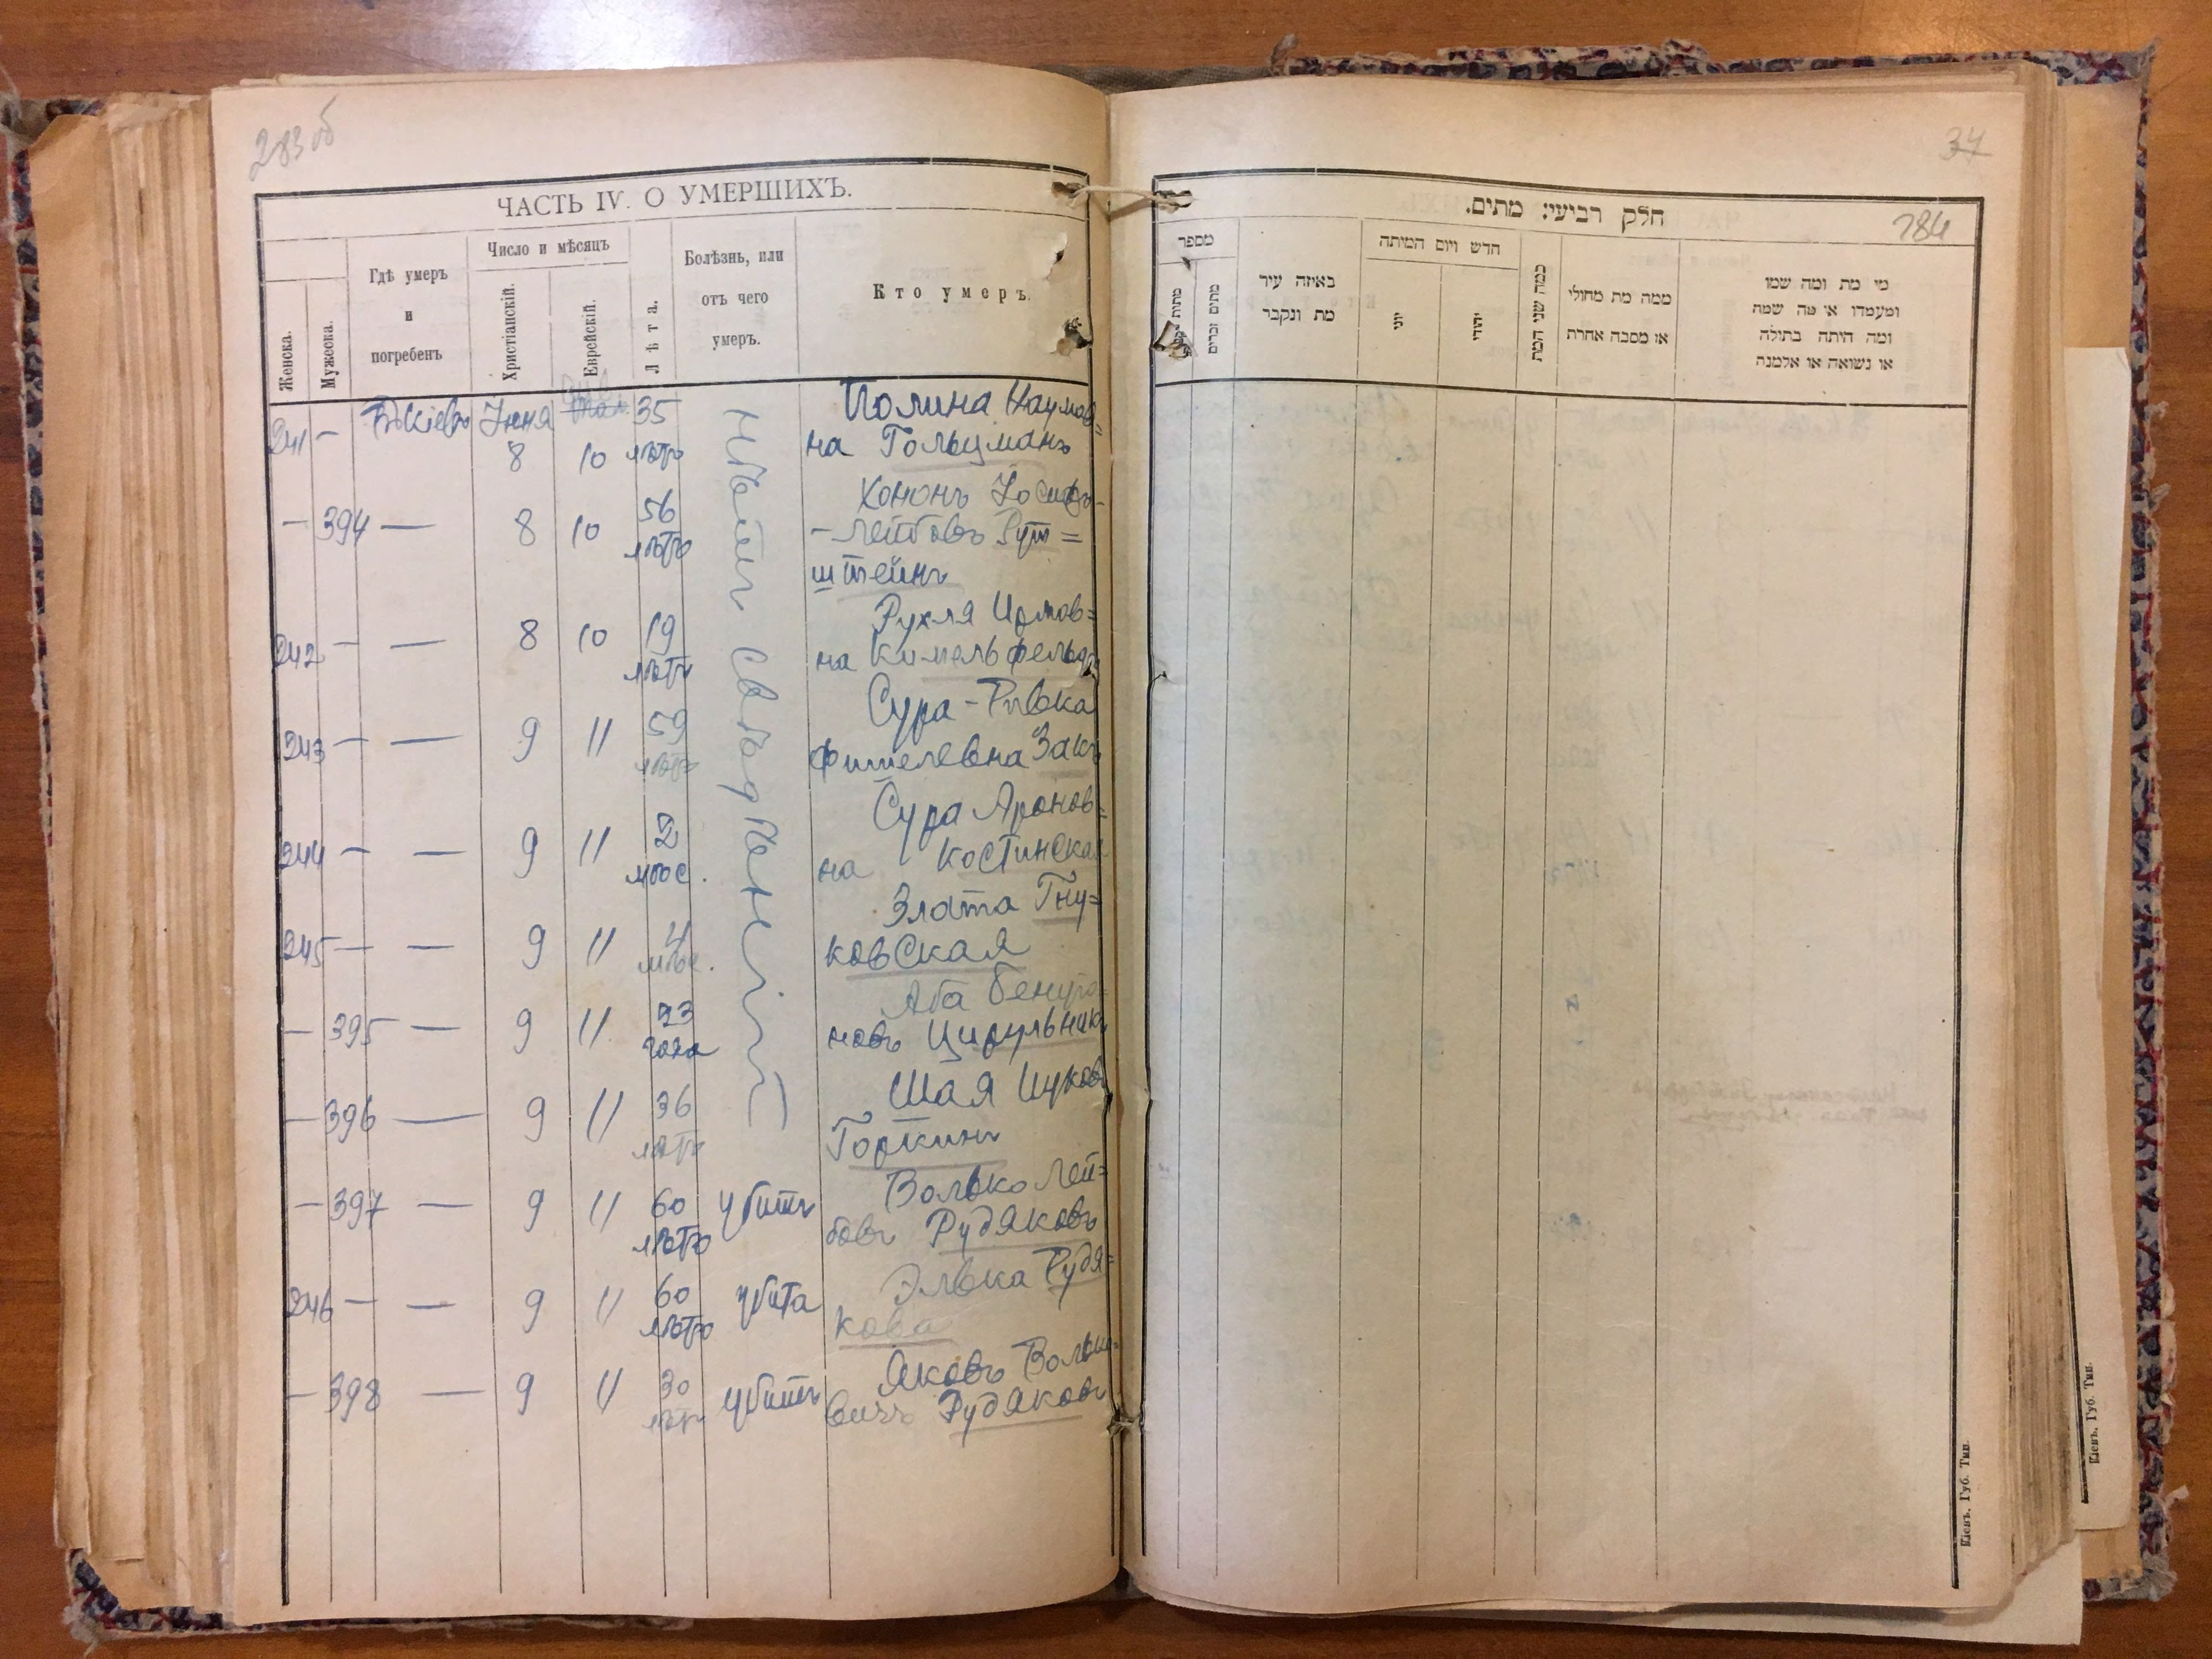 283 об
ЧАСТЬ IV. О УМЕРШИХЪ.
Женска.
Мужеска.
Гдѣ умеръ
и
погребенъ
Число и мѣсяцъ
Христіанскій.
Еврейскій.
Лѣта.
Болѣзнь, или
отъ чего
умеръ.
Кто умеръ.
241 — Въ Кіевѣ Іюня 35 Полина Наумов=
8 10 лѣтъ на Гольцманъ
Хононъ Іосифъ-
— 394 — 8 10 56 лѣтъ -Лейбовъ Рут=
штейнъ
242 — — 8 10 19 Рухля
лѣтъ на Кимельфельдъ
243 — — 9 11 59 Сура-Ривка
лѣтъ Фишелевна Закъ
244 — — 9 11 2 Сура Аронов=
мѣс. на Костинская
245 — — 9 11 4 Злата Гну=
мѣс. ковская
— 395 — 9 11 Аба
года новъ Цирульникъ
— 396 — 9 11 36 Шая Ицковъ
лѣтъ Горкинъ
— 397 — 9 11 60 убитъ Волько Лей=
лѣтъ бовъ Рудяковъ
246 — — 9 11 60 убита Элька Рудя=
лѣтъ кова
— 398 — 9 11 30 убитъ Яковъ Волько=
лѣтъ вичъ Рудяковъ
нѣтъ свѣдѣній
34
חלק רביעי: מתים.
284
מספר
מתים זכרים
באיזה עיר
מת ונקבר
חדש ויום המיתה
יוני
יהודי
כמה שני המת
ממה מת מחולי
או מסבה אחרת
מי מת ומה שמו
ומעמדו או מה שמה
ומה היתה בתולה
או נשואה או אלמנה
Кіевъ. Губ. Тип.
Кіевъ. Губ. Тип.